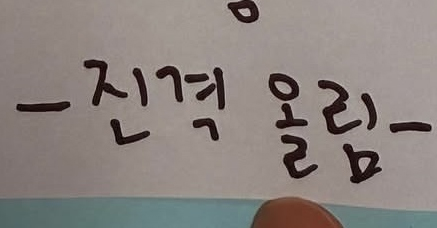 -진격 올림-